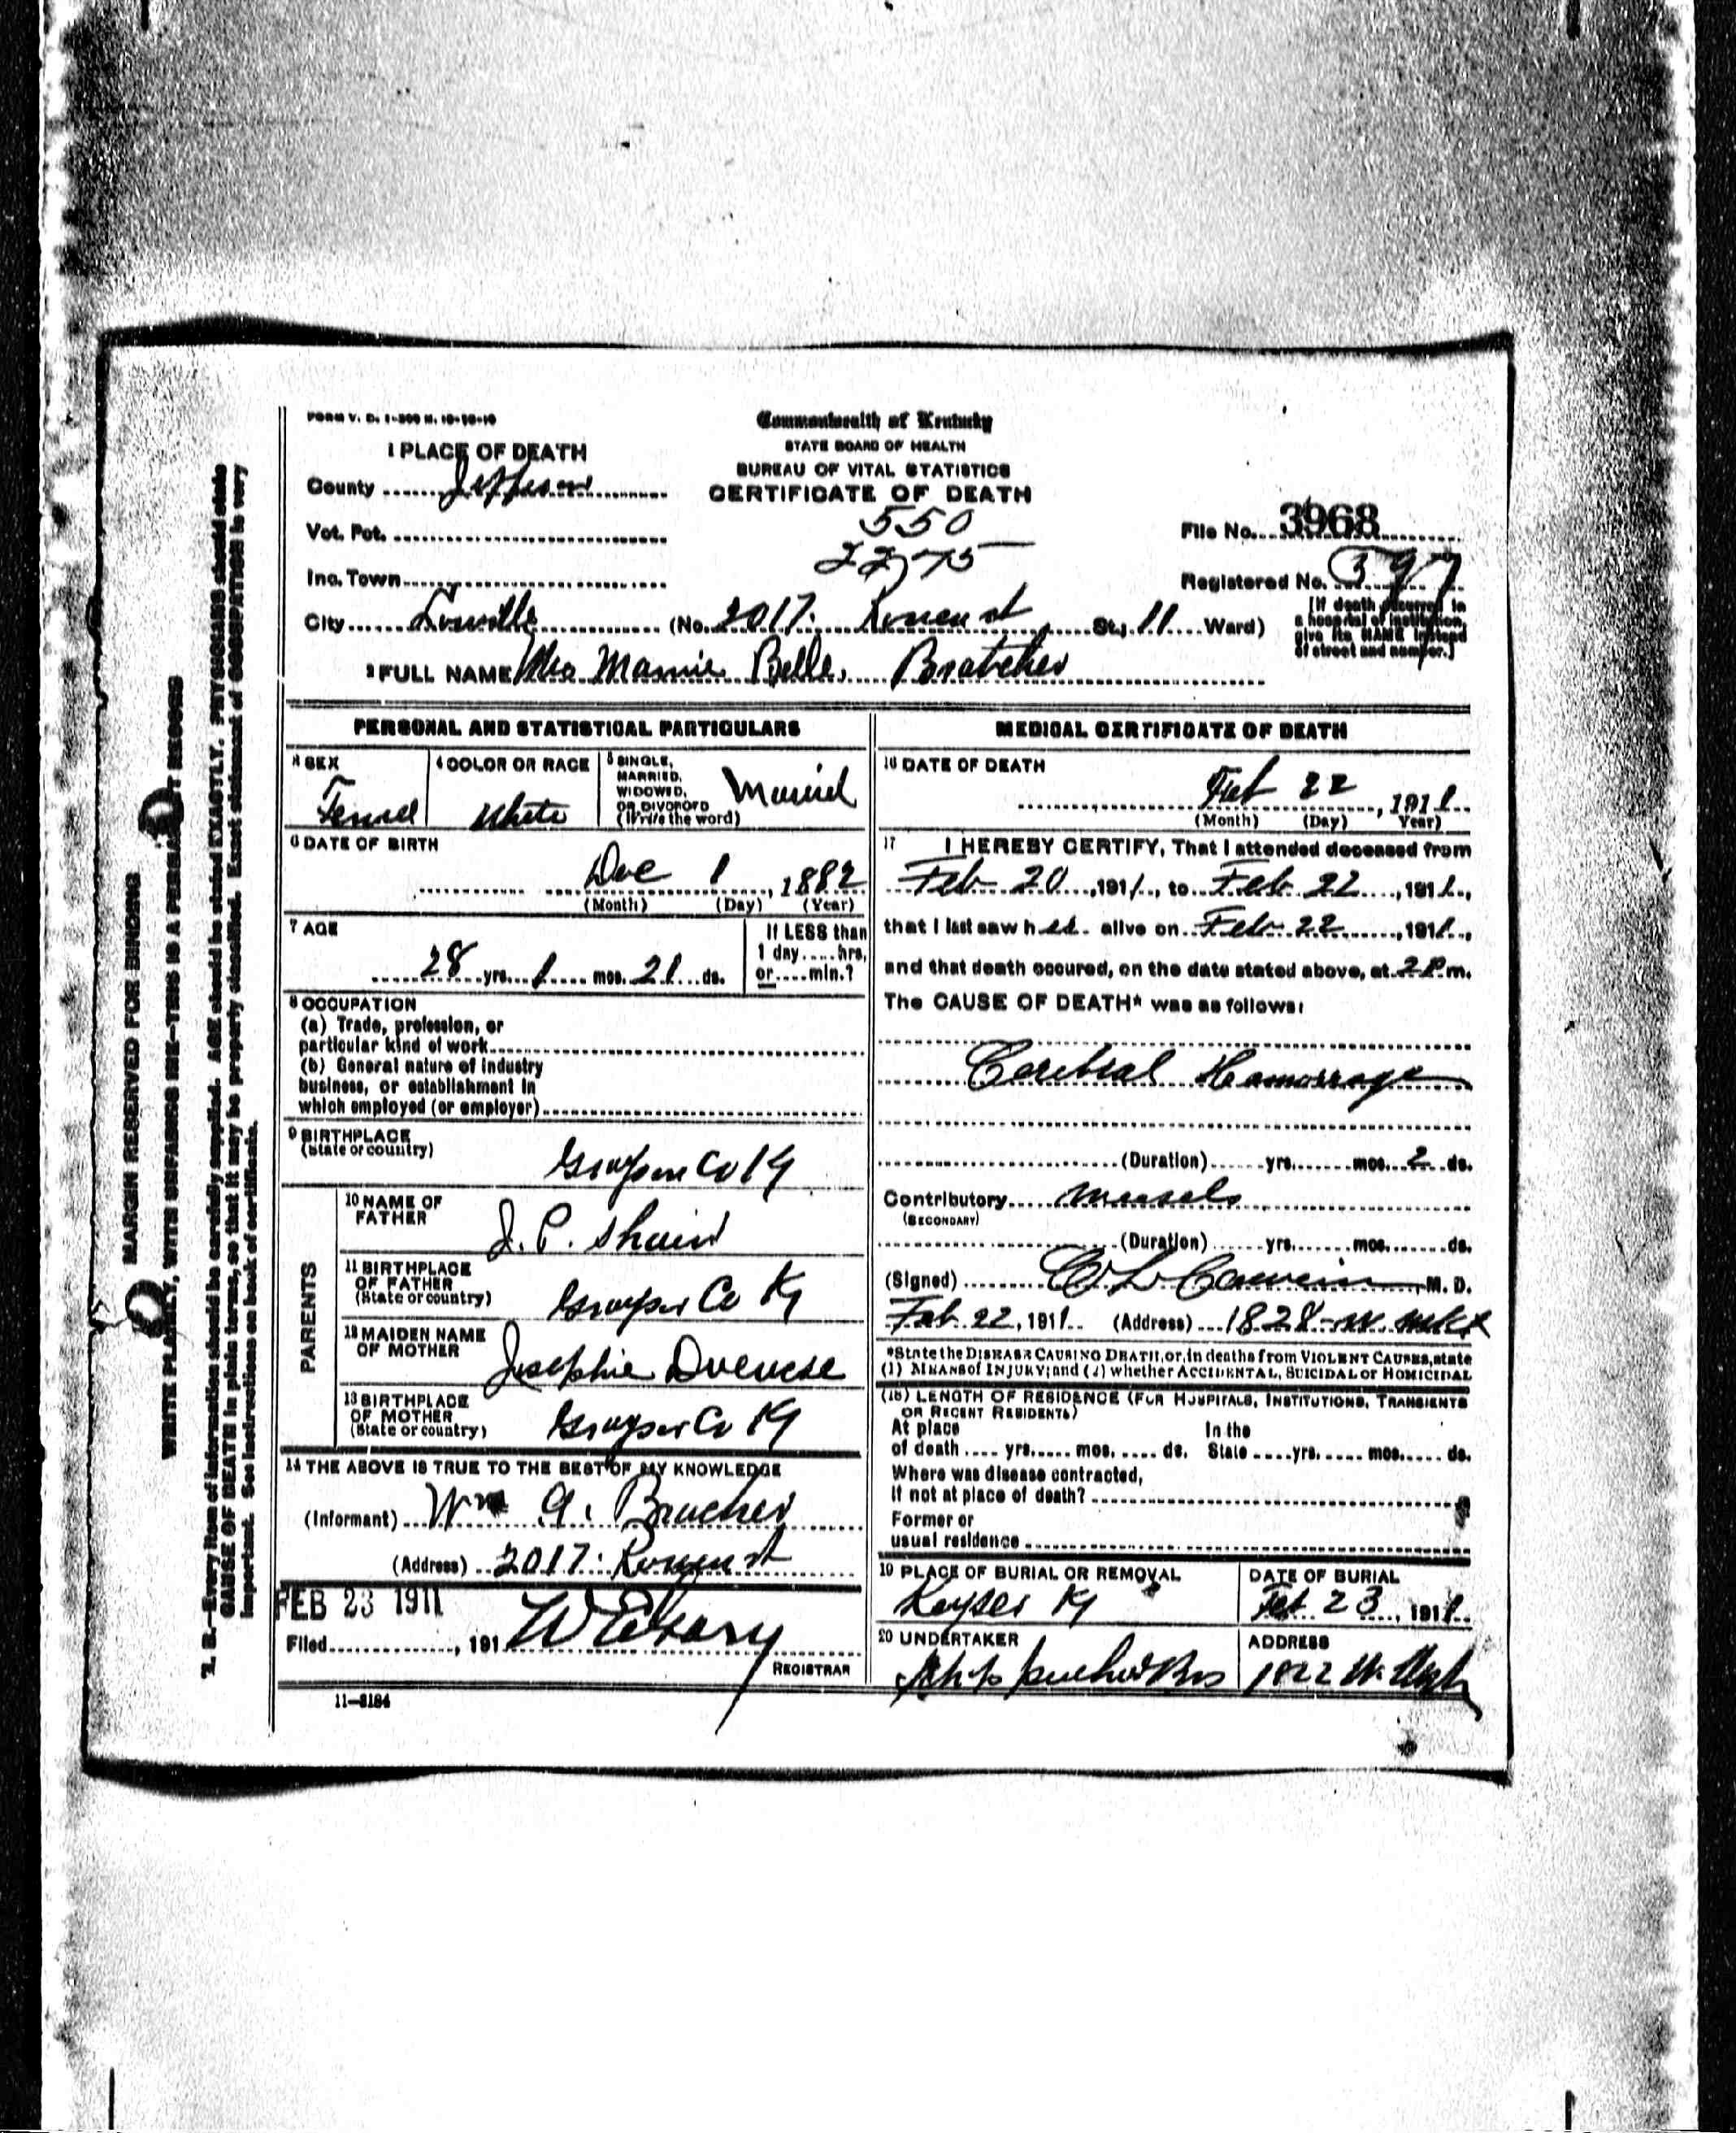 FORM V. D. 1-300 M. 10-10-10
Commonwealth of Kentucky
STATE BOARD OF HEALTH
BUREAU OF VITAL STATISTICS
CERTIFICATE OF DEATH
550
2275
1 PLACE OF DEATH
County Jefferson
Vot. Pct.
Inc. Town
City Louville (No. 2017 St.; 11 Ward)
File No. 3968
Registered No. 397
[If death occurred in
a hospital or institution,
give its NAME instead
of street and number.]
2 FULL NAME Mrs Mamie Belle Bratcher
PERSONAL AND STATISTICAL PARTICULARS
3 SEX
Femel
4 COLOR OR RACE
White
5 SINGLE,
MARRIED,
WIDOWED,
OR DIVORCED
(Write the word)
Maried
6 DATE OF BIRTH
1, 1882
(Month) (Day) (Year)
7 AGE
28 yrs. 1 mos. 21 ds.
If LESS than
1 day....hrs,
or....min.?
8 OCCUPATION
(a) Trade, profession, or
particular kind of work
(b) General nature of industry
business, or establishment in
which employed (or employer)
9 BIRTHPLACE
(State or country)
Grayson Co Ky
PARENTS
10 NAME OF
FATHER
J. P. Shain
11 BIRTHPLACE
OF FATHER
(State or country)
Grayson Co Ky
12 MAIDEN NAME
OF MOTHER
Josephie
13 BIRTHPLACE
OF MOTHER
(State or country)
Grayson Co Ky
14 THE ABOVE IS TRUE TO THE BEST OF MY KNOWLEDGE
(Informant) Wm A. Bracher
(Address) 2017
FEB 23 1911
Filed , 191
REGISTRAR
11-3184
MEDICAL CERTIFICATE OF DEATH
16 DATE OF DEATH
Feb 22, 1911
(Month) (Day) Year)
17 I HEREBY CERTIFY, That I attended deceased from
Feb 20, 1911, to Feb 22, 1911,
that I last saw her alive on Feb 22, 1911,
and that death occured, on the date stated above, at 2 P.m.
The CAUSE OF DEATH* was as follows:
Cerebral Hemorrage
(Duration) yrs. mos. 2 ds.
Contributory measels
(SECONDARY)
(Duration) yrs. mos. ds.
(Signed) M. D.
Feb 22, 1911 (Address) 1828 W. Mkt
*State the DISEASE CAUSING DEATH, or, in deaths from VIOLENT CAUSES, state
(1) MEANS of INJURY; and (2) whether ACCIDENTAL, SUICIDAL or HOMICIDAL
(18) LENGTH OF RESIDENCE (FOR HOSPITALS, INSTITUTIONS, TRANSIENTS
OR RECENT RESIDENTS)
At place In the
of death .... yrs..... mos. .... ds. State ....yrs. .... mos..... ds.
Where was disease contracted,
If not at place of death?
Former or
usual residence
19 PLACE OF BURIAL OR REMOVAL
Keyser Ky
DATE OF BURIAL
Feb 23, 1911
20 UNDERTAKER
ADDRESS
1822 W.
MARGIN RESERVED FOR BINDING
WRITE PLAINLY, WITH UNFADING INK—THIS IS A PERMANENT RECORD
N. B.—Every item of information should be carefully supplied. AGE should be stated EXACTLY. PHYSICIANS should state
CAUSE OF DEATH in plain terms, so that it may be properly classified. Exact statement of OCCUPATION is very
important. See instructions on back of certificate.